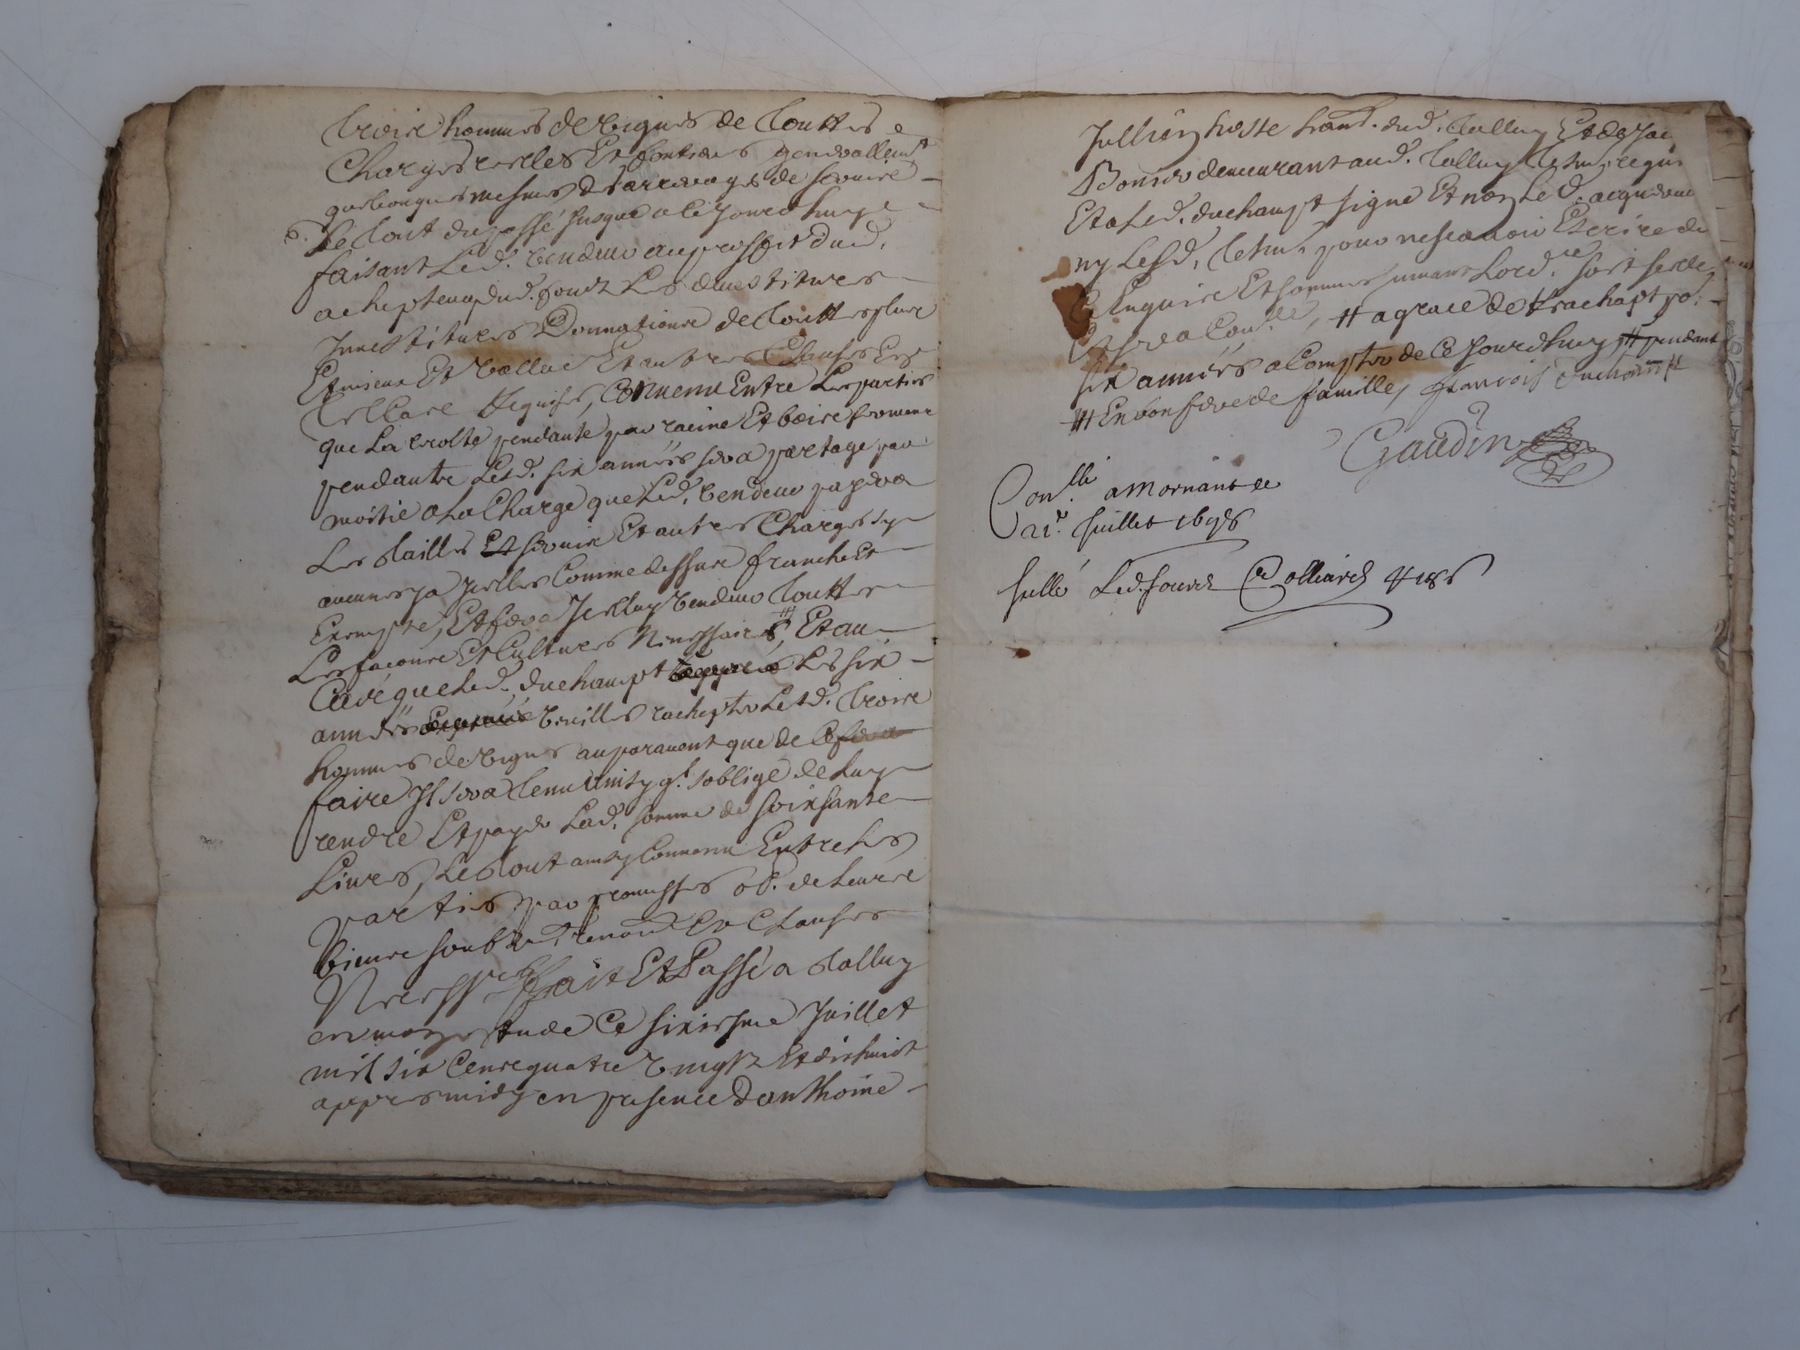 trois hommes de vignes de touttes
Charges reelles Et fontieres generallemt
quelconques mesmes des arrerages de servire
Le tout du passé Jusques a Ce Jourd'huy
faisant Led. vendeur au proffit dud.
achepteur dud. fondz Les devestitures
Investitures Donnations de touttes plus
Et mieux Et vallue Et autres Clauses En
tel Cas Requises, Convenu Entre Les parties
que La recolte pendante par racine Et
pendantre Lesd. six années sera partagé par
moitié a La Charge que Led. vendeur payera
Les tailles Et servire Et autres Charges sy
aucunes ya Jcelles Comme dessus franche Et
Exempte, Et fera Jcelluy vendeur touttes
Les façons Et Cultures Necessaires #, Et au
Cas que Led. duchampt Les six
années veuille rachepter Lesd. trois
hommes de vignes auparavent que de Ce
faire Jl sera tenu ainsy ql soblige de luy
rendre Et payer Lad. somme de soixsante
Livres, Le tout ainsy Convenu Entre Les
parties par promesses ob. de leurs
biens soub. renon. Et Clauses
Necessres Fait Et Passé a talluy
en mon Estude Ce sixiesme Juillet
mil six Cens quatre vingtz Et dixhuict
appres midy en presence d'anthoine
Jullien hoste hant. dud. talluy Et de
Bonier demeurant aud. talluy tesm. requis
Et a Led. duchampt signé Et non Led. acquereur
ny Lesd. tesm. pour ne scavoir Escrire de
Ce Enquis Et sommes suivant Lord.ce
# a grace de Rachapt po.r
six années a Compter de Ce Jourdhuy # pendant
# En bon pere de famille, francois duchampt
Gaudin
Con.llé a Mornant Le
21.e Juillet 1698
scellé Led. Jour Colliard